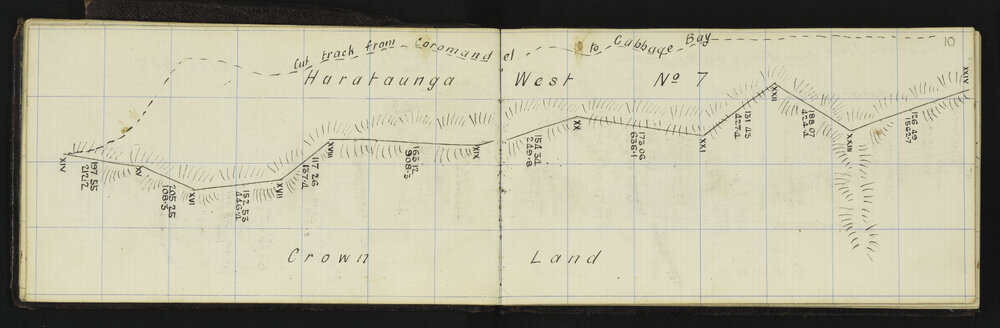 Cut track from Coromandel to Cabbage Bay
10
Harataunga West No 7
XIV
197 55
212·2
XV
205·25
108·3
XVI
152 53
446·4
XVII
117 26
137·4
XVIII
908·3
XIX
154 34
249·8
XX
173 06
636·1
XXI
131 43
427·4
XXII
188 07
424·4
XXIII
126 49
1562·7
XXIV
Crown Land